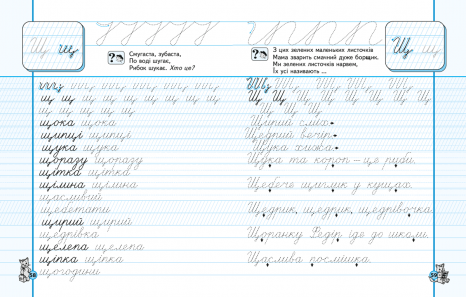 Щ щ
Смугаста, зубаста,
По воді шугає,
Рибок шукає. Хто це?
щ щ щ щ щ щ щ щ
щ щ щ щ щ щ щ щ
щока щока
щипці щипці
щука щука
щоразу щоразу
щітка щітка
щілина щілина
щасливий
щебетати
щирий щирий
щедрівка
щелепа щелепа
щіпка щіпка
щогодини
58
Щ щ
З цих зелених маленьких листочків
Мама зварить смачний дуже борщик.
Ми зелених листочків нарвем,
Їх усі називають ...
Щ Щ Щ Щ Щ Щ Щ
Щ Щ Щ Щ Щ Щ Щ
Щирий сміх.
Щедрий вечір.
Щука хижа.
Щука та короп – це риби.
Щебече щиглик у кущах.
Щедрик, щедрик, щедрівочка.
Щоранку Федір іде до школи.
Щаслива посмішка.
59